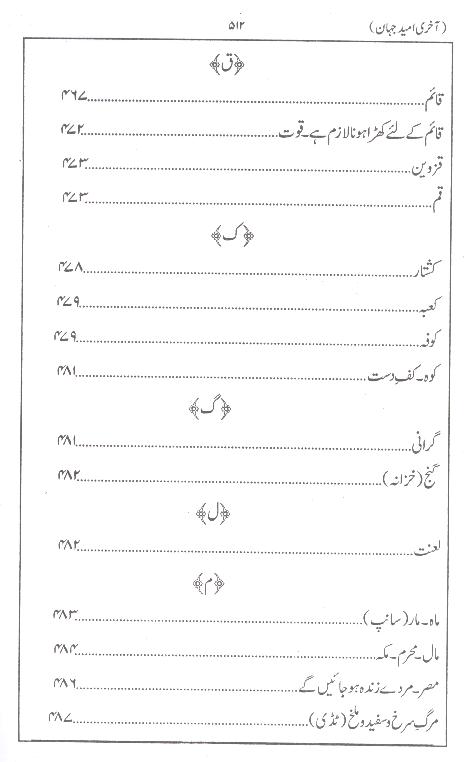 (آخری امید جہان) ۵۱۲
﴿ق﴾
قائم........۴۶۷
قائم کے لئے کھڑا ہونا لازم ہے۔قوت........۴۷۲
قزوین........۴۷۳
قم........۴۷۳
﴿ک﴾
کشتار........۴۷۸
کعبہ........۴۷۹
کوفہ........۴۷۹
کوہ۔کفِ دست........۴۸۱
﴿گ﴾
گرانی........۴۸۱
گنج (خزانہ)........۴۸۲
﴿ل﴾
لعنت........۴۸۲
﴿م﴾
ماہ۔مار (سانپ)........۴۸۳
مال۔محرم۔مکہ........۴۸۴
مصر۔مردے زندہ ہو جائیں گے........۴۸۶
مرگِ سرخ و سفید و ملخ (ٹڈی)........۴۸۷